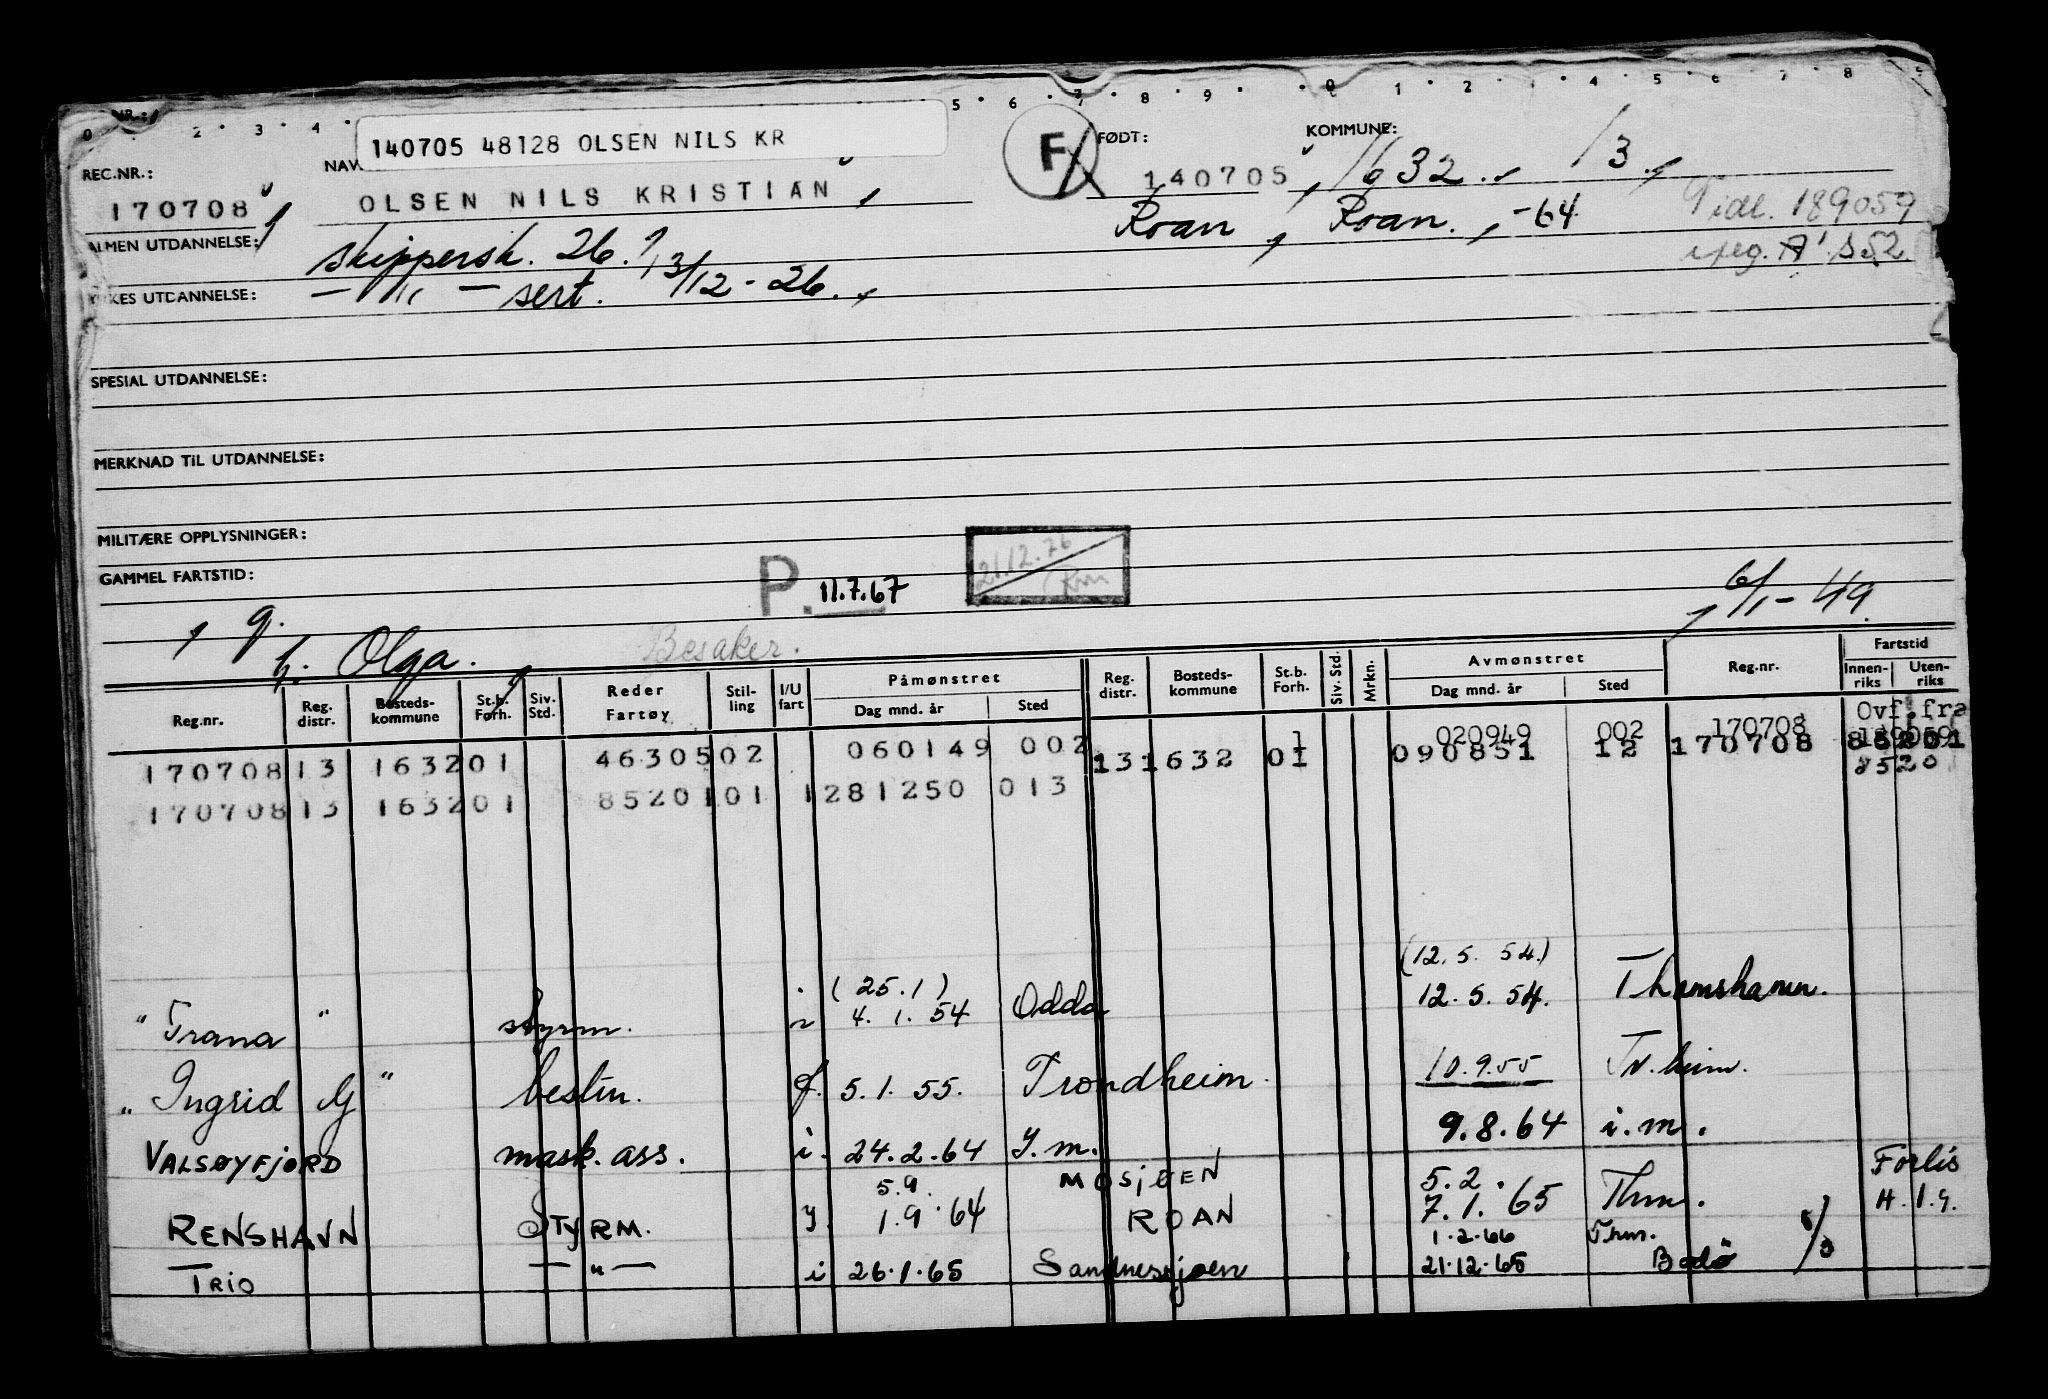 NR.:
0 2 3 4 5 6 7 8 9 0 1 2 4 5 6 7 8 9
140705 48128 OLSEN NILS KR
F
REC.NR.: NAV FØDT: KOMMUNE:
170708 OLSEN NILS KRISTIAN 140705 1632 13
ALMEN UTDANNELSE: Roan Roan. -64 Tidl. 189059
skippersk. 26. s52
KES UTDANNELSE: — " — sert. 13/12-26.
SPESIAL UTDANNELSE:
MERKNAD TIL UTDANNELSE:
MILITÆRE OPPLYSNINGER:
GAMMEL FARTSTID: P. 11.7.67 21.12.76
g. 6/1-49
h. Olga. Besaker.
Reg.nr. Reg. distr. Bosteds-kommune St.b. Forh. Siv. Std. Reder Fartøy Stil-ling I/U fart Påmønstret Dag mnd. år Sted Reg. distr. Bosteds-kommune St.b. Forh. Siv. Std. Mrkn. Avmønstret Dag mnd. år Sted Reg.nr. Fartstid Innen-riks Uten-riks
1 020949 002 170708 Ovf.fra
170708 13 1632 01 46305 02 060149 002 13 1632 01 090851 12 170708 85201
8520
170708 13 1632 01 85201 01 1 281250 013
(25.1) (12.5.54.)
"Trana" styrm. i 4.1.54 Odda 12.5.54. Thamshamn.
"Ingrid G" bestm. f. 5.1.55. Trondheim. 10.9.55 Tr.heim.
VALSØYFJORD mask. ass. i. 24.2.64 I.m. 9.8.64 i.m.
5.9. MOSJØEN 5.2. Forlis
RENSHAVN STYRM. I. 1.9.64 ROAN 7.1.65 Thm. H.I.9.
1.2.66 Thm.
TRIO — " — i 26.1.65 Sandnessjøen 21.12.65 Bodø 8/3